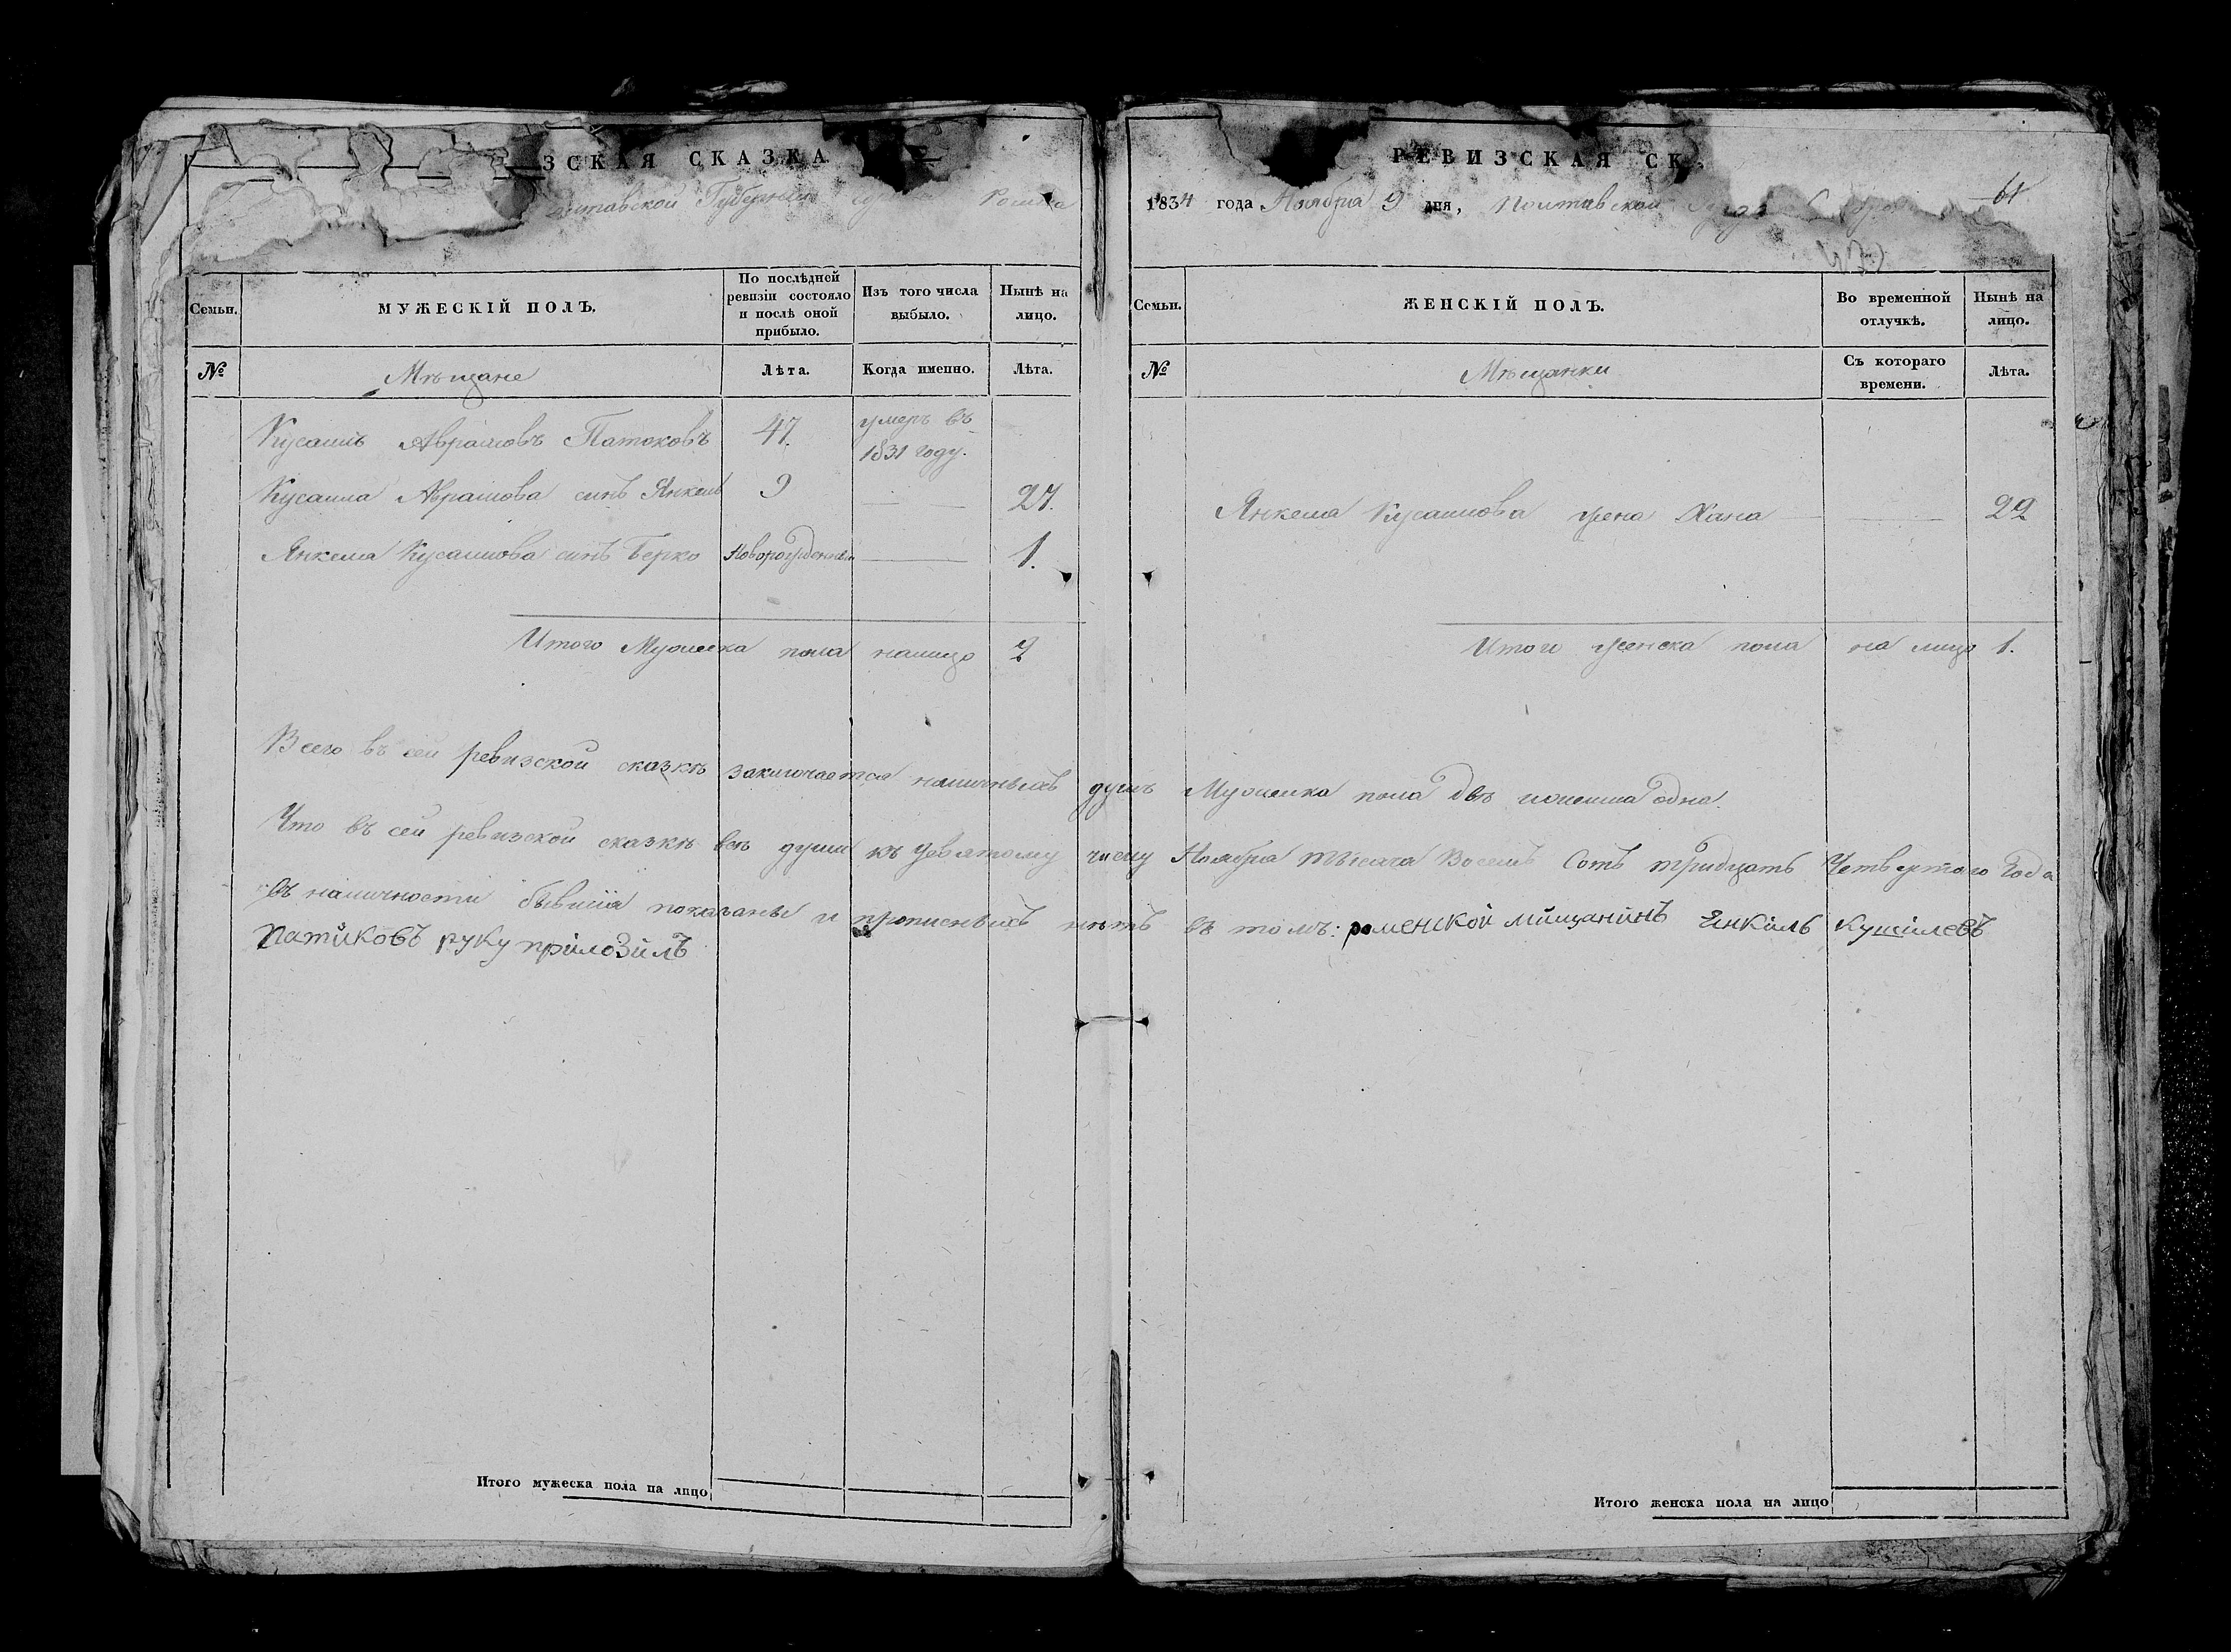 ЗСКАЯ СКАЗКА
тавской Губернии Ромна
Семьи.
МУЖЕСКІЙ ПОЛЪ.
По послѣдней ревизіи состояло и послѣ оной прибыло.
Изъ того числа выбыло.
Нынѣ на лицо.
№
Мѣщане
Лѣта.
Когда именно.
Лѣта.
Кусаилъ Аврамовъ Патоковъ 47. умеръ въ 1831 году.
Кусаила Аврамова синъ Янкель 9 — — 27.
Янкеля Кусаилова синъ Берко Новорожденній — 1.
Итого Мужеска пола налицо 2
РЕВИЗСКАЯ СК
61
1834 года Ноября 9 дня, Полтавской
Семьи.
ЖЕНСКІЙ ПОЛЪ.
Во временной отлучкѣ.
Нынѣ на лицо.
№
Мѣщанки
Съ котораго времени.
Лѣта.
Янкеля Кусаилова жена Хана — — 22
Итого женска пола на лицо 1.
Всего въ сей ревизской сказкѣ заключается наличныхъ душъ Мужеска пола двѣ и женска одна.
Что въ сей ревизской сказкѣ всѣ души къ девятому числу Ноября тысяча Восемъ Сотъ тридцать Четвертого Года
въ наличности бывшія показаны и прописныхъ нѣтъ въ томъ: роменской мйщанинъ Енкіль Кушілевъ
Патйковъ руку прілозілъ
Итого мужеска пола на лицо
Итого женска пола на лицо